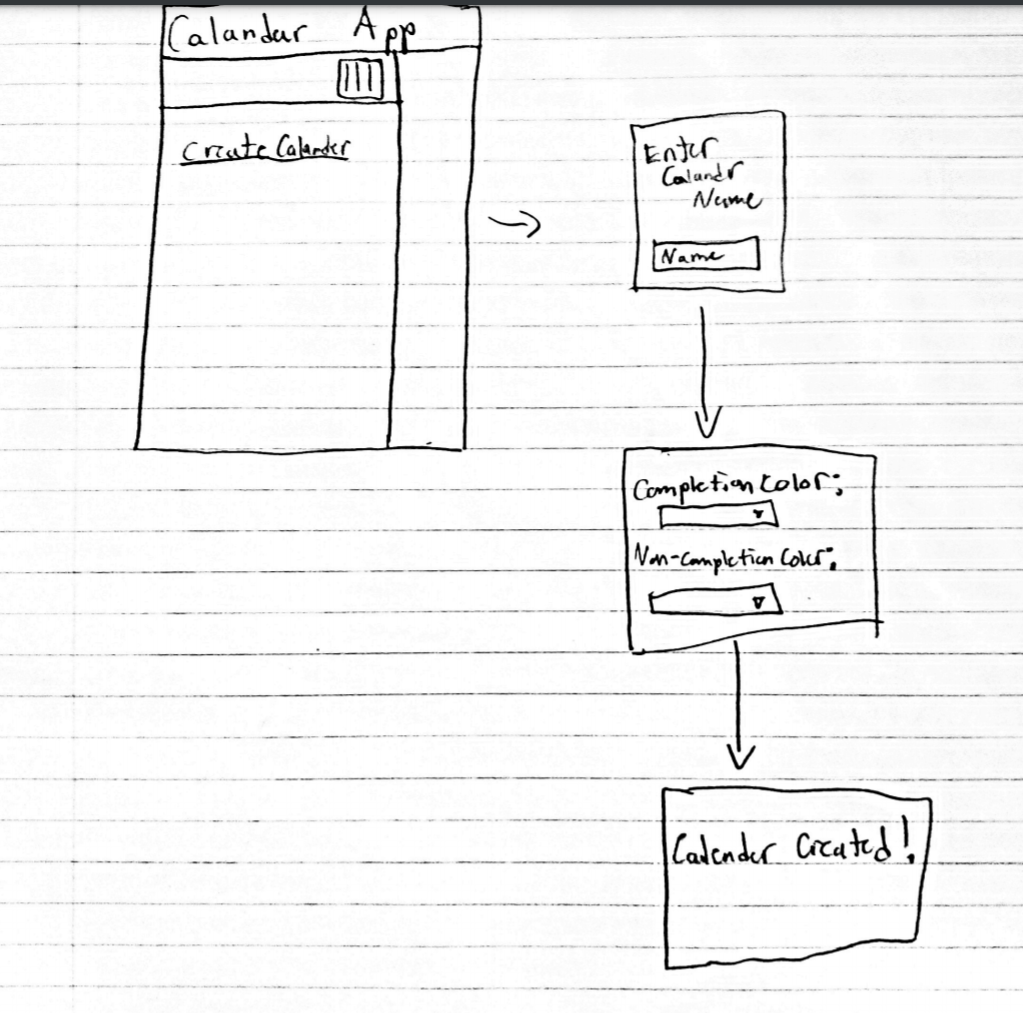 Calandar App
Create Calander
Enter
Calandr
Name
Name
Completion Color:
Non-completion Color:
Calender Created!